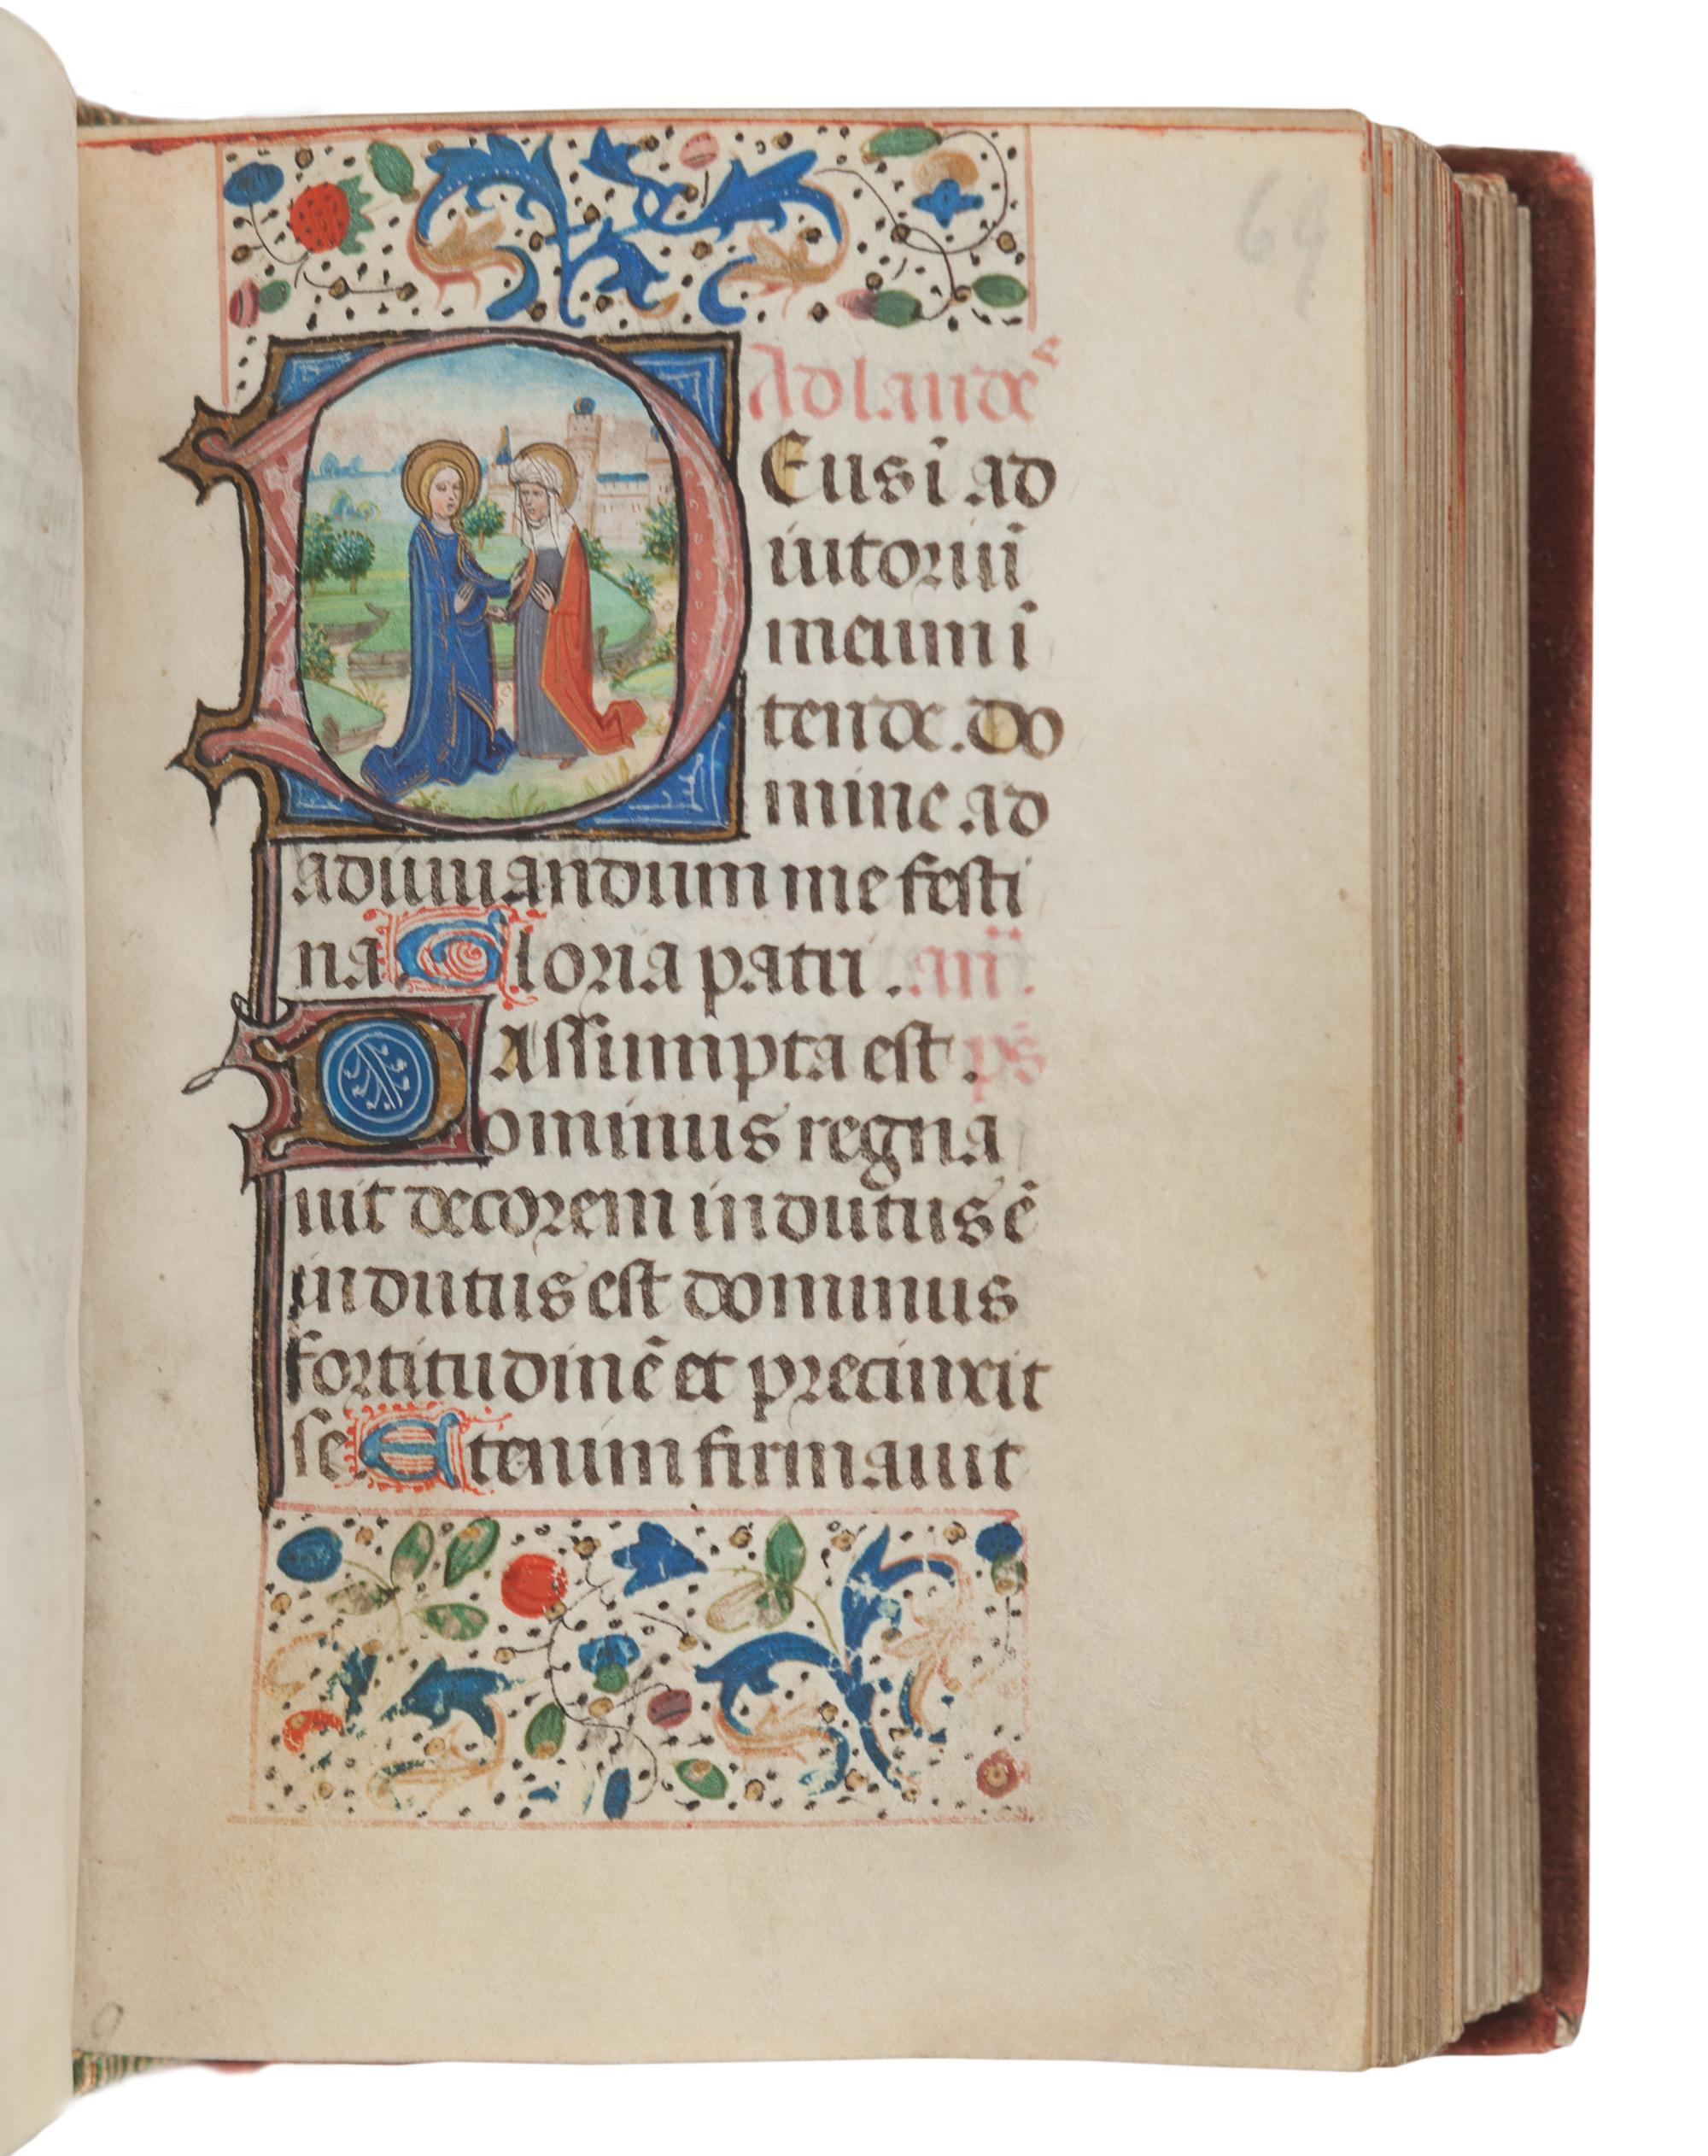 69
Ad laudeˢ
DEus ī ad
iutoriū
meum ī
tende. do
mine ad
adiuuandum me festi
na. Gloria patri. añ.
Assumpta est. ps̄
Dominus regna
uit decorem indutus ē
indutus est dominus
fortitudinē et precinxit
se. Etenim firmauit